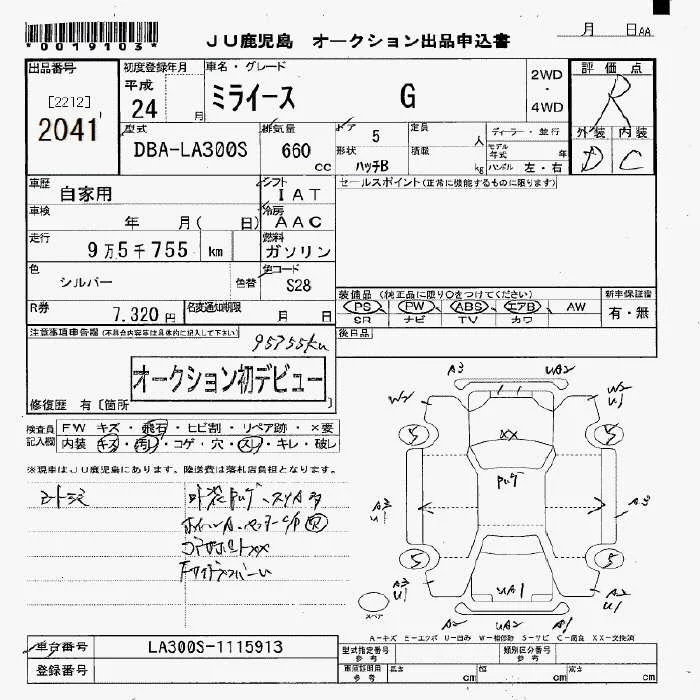 *0019103*
JU鹿児島 オークション出品申込書
月 日AA
出品番号
[2212]
2041
初度登録年月
平成
24 月
車名・グレード
ミライース G
2WD
・
4WD
評価点
R
外装 内装
D C
型式
DBA-LA300S
排気量
660
cc
ドア 5
形状 ハッチB
定員 人
積載 kg
ディーラー・並行
モデル年式 年
ハンドル 左・右
車歴
自家用
シフト
IAT
セールスポイント(正常に機能するものに限ります)
車検
年 月( 日)
冷房
AAC
走行
9万5千755 km
燃料
ガソリン
色
シルバー
色替
色コード
S28
装備品(純正品に限り○をつけてください)
PS PW ABS エアB AW
SR ナビ TV カワ
新車保証書
有・無
R券
7,320円
名変通知期限
月 日
後日品
注意事項申告欄(不具合内容等は具体的に記入して下さい)
95755km
オークション初デビュー
修復歴 有〔箇所 〕
検査員
記入欄
FW キズ・飛石・ヒビ割・リペア跡・×要
内装 キズ・汚れ・コゲ・穴・スレ・キレ・破レ
※現車はJU鹿児島にあります。陸送費は落札店負担となります。
A3 UA2
W2 W2
U1
5 5
XX
A3
U1
A3
5 5
A3
U1
UA1
A2
U1
A2 UA2 A1
スペア
A-キズ E-エクボ U-凹み W-補修跡 S-サビ C-腐食 XX-交換済
車台番号
LA300S-1115913
登録番号
型式指定番号
参考
類別区分番号
参考
車庫証明用
参考
長さ cm
幅 cm
高さ cm